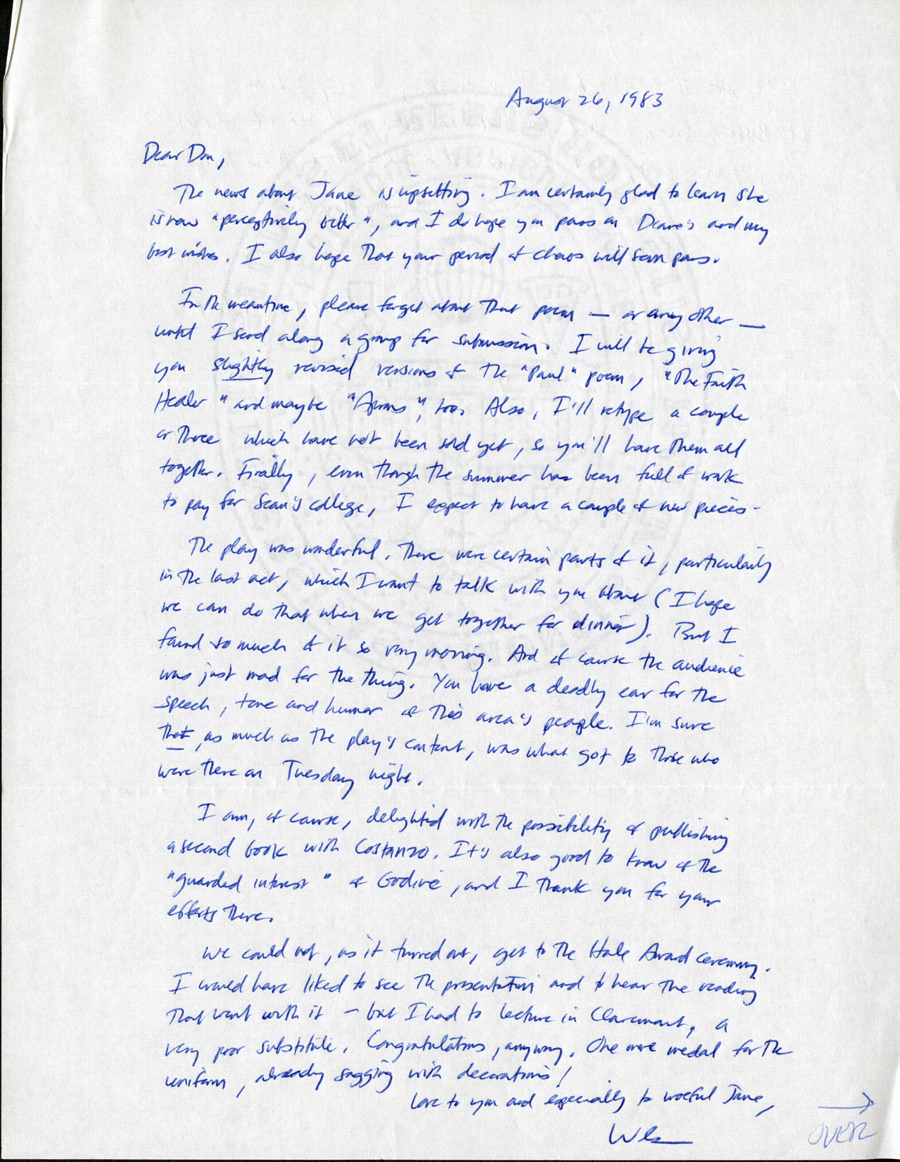 August 26, 1983
Dear Don,
The news about Jane is upsetting. I am certainly glad to learn she
is now "perceptively better", and I do hope you pass on Diane's and my
best wishes. I also hope that your period of chaos will soon pass.
In the meantime, please forget about that poem — or any other —
until I send along a group for submission. I will be giving
you slightly revised versions of the "Paul" poem, "The Faith
Healer" and maybe "Aprons", too. Also, I'll retype a couple
or three which have not been sold yet, so you'll have them all
together. Finally, even though the summer has been full of work
to pay for Sean's college, I expect to have a couple of new pieces.
The play was wonderful. There were certain parts of it, particularly
in the last act, which I want to talk with you about (I hope
we can do that when we get together for dinner). But I
found so much of it so very moving. And of course the audience
was just mad for the thing. You have a deadly ear for the
speech, tone and humor of this area's people. I'm sure
that, as much as the play's content, was what got to those who
were there on Tuesday night.
I am, of course, delighted with the possibility of publishing
a second book with Costanzo. It's also good to know of the
"guarded interest" of Godine, and I thank you for your
efforts there.
We could not, as it turned out, get to the Hale Award ceremony.
I would have liked to see the presentation and to hear the reading
that went with it – but I had to lecture in Claremont, a
very poor substitute. Congratulations, anyway. One more medal for the
uniform, already sagging with decorations!
Love to you and especially to woeful Jane,
Wes
OVER